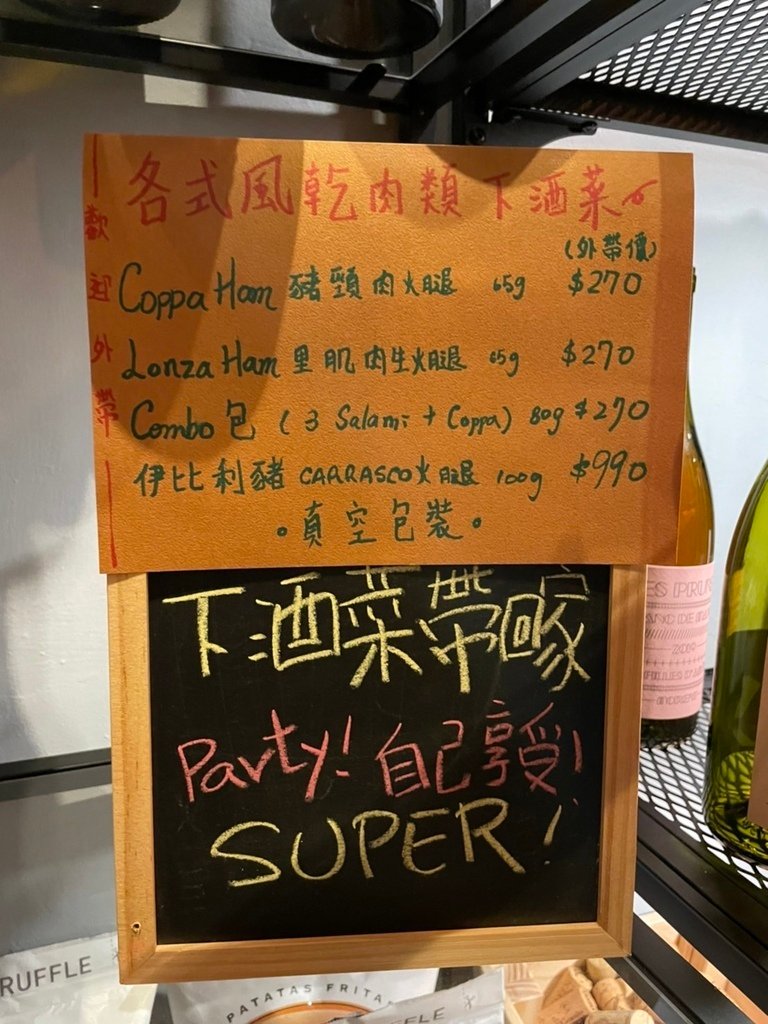 各式風乾肉類下酒菜
歡迎外帶
(外帶價)
Coppa Ham 豬頸肉火腿 65g $270
Lonza Ham 里肌肉生火腿 65g $270
Combo包 (3 Salami + Coppa) 80g $270
伊比利豬 CARRASCO火腿 100g $990
。真空包裝。
下酒菜帶回家
Party! 自己享受!
SUPER!
ES PRUN
2019
RUFFLE
PATATAS FRITA
FFLE